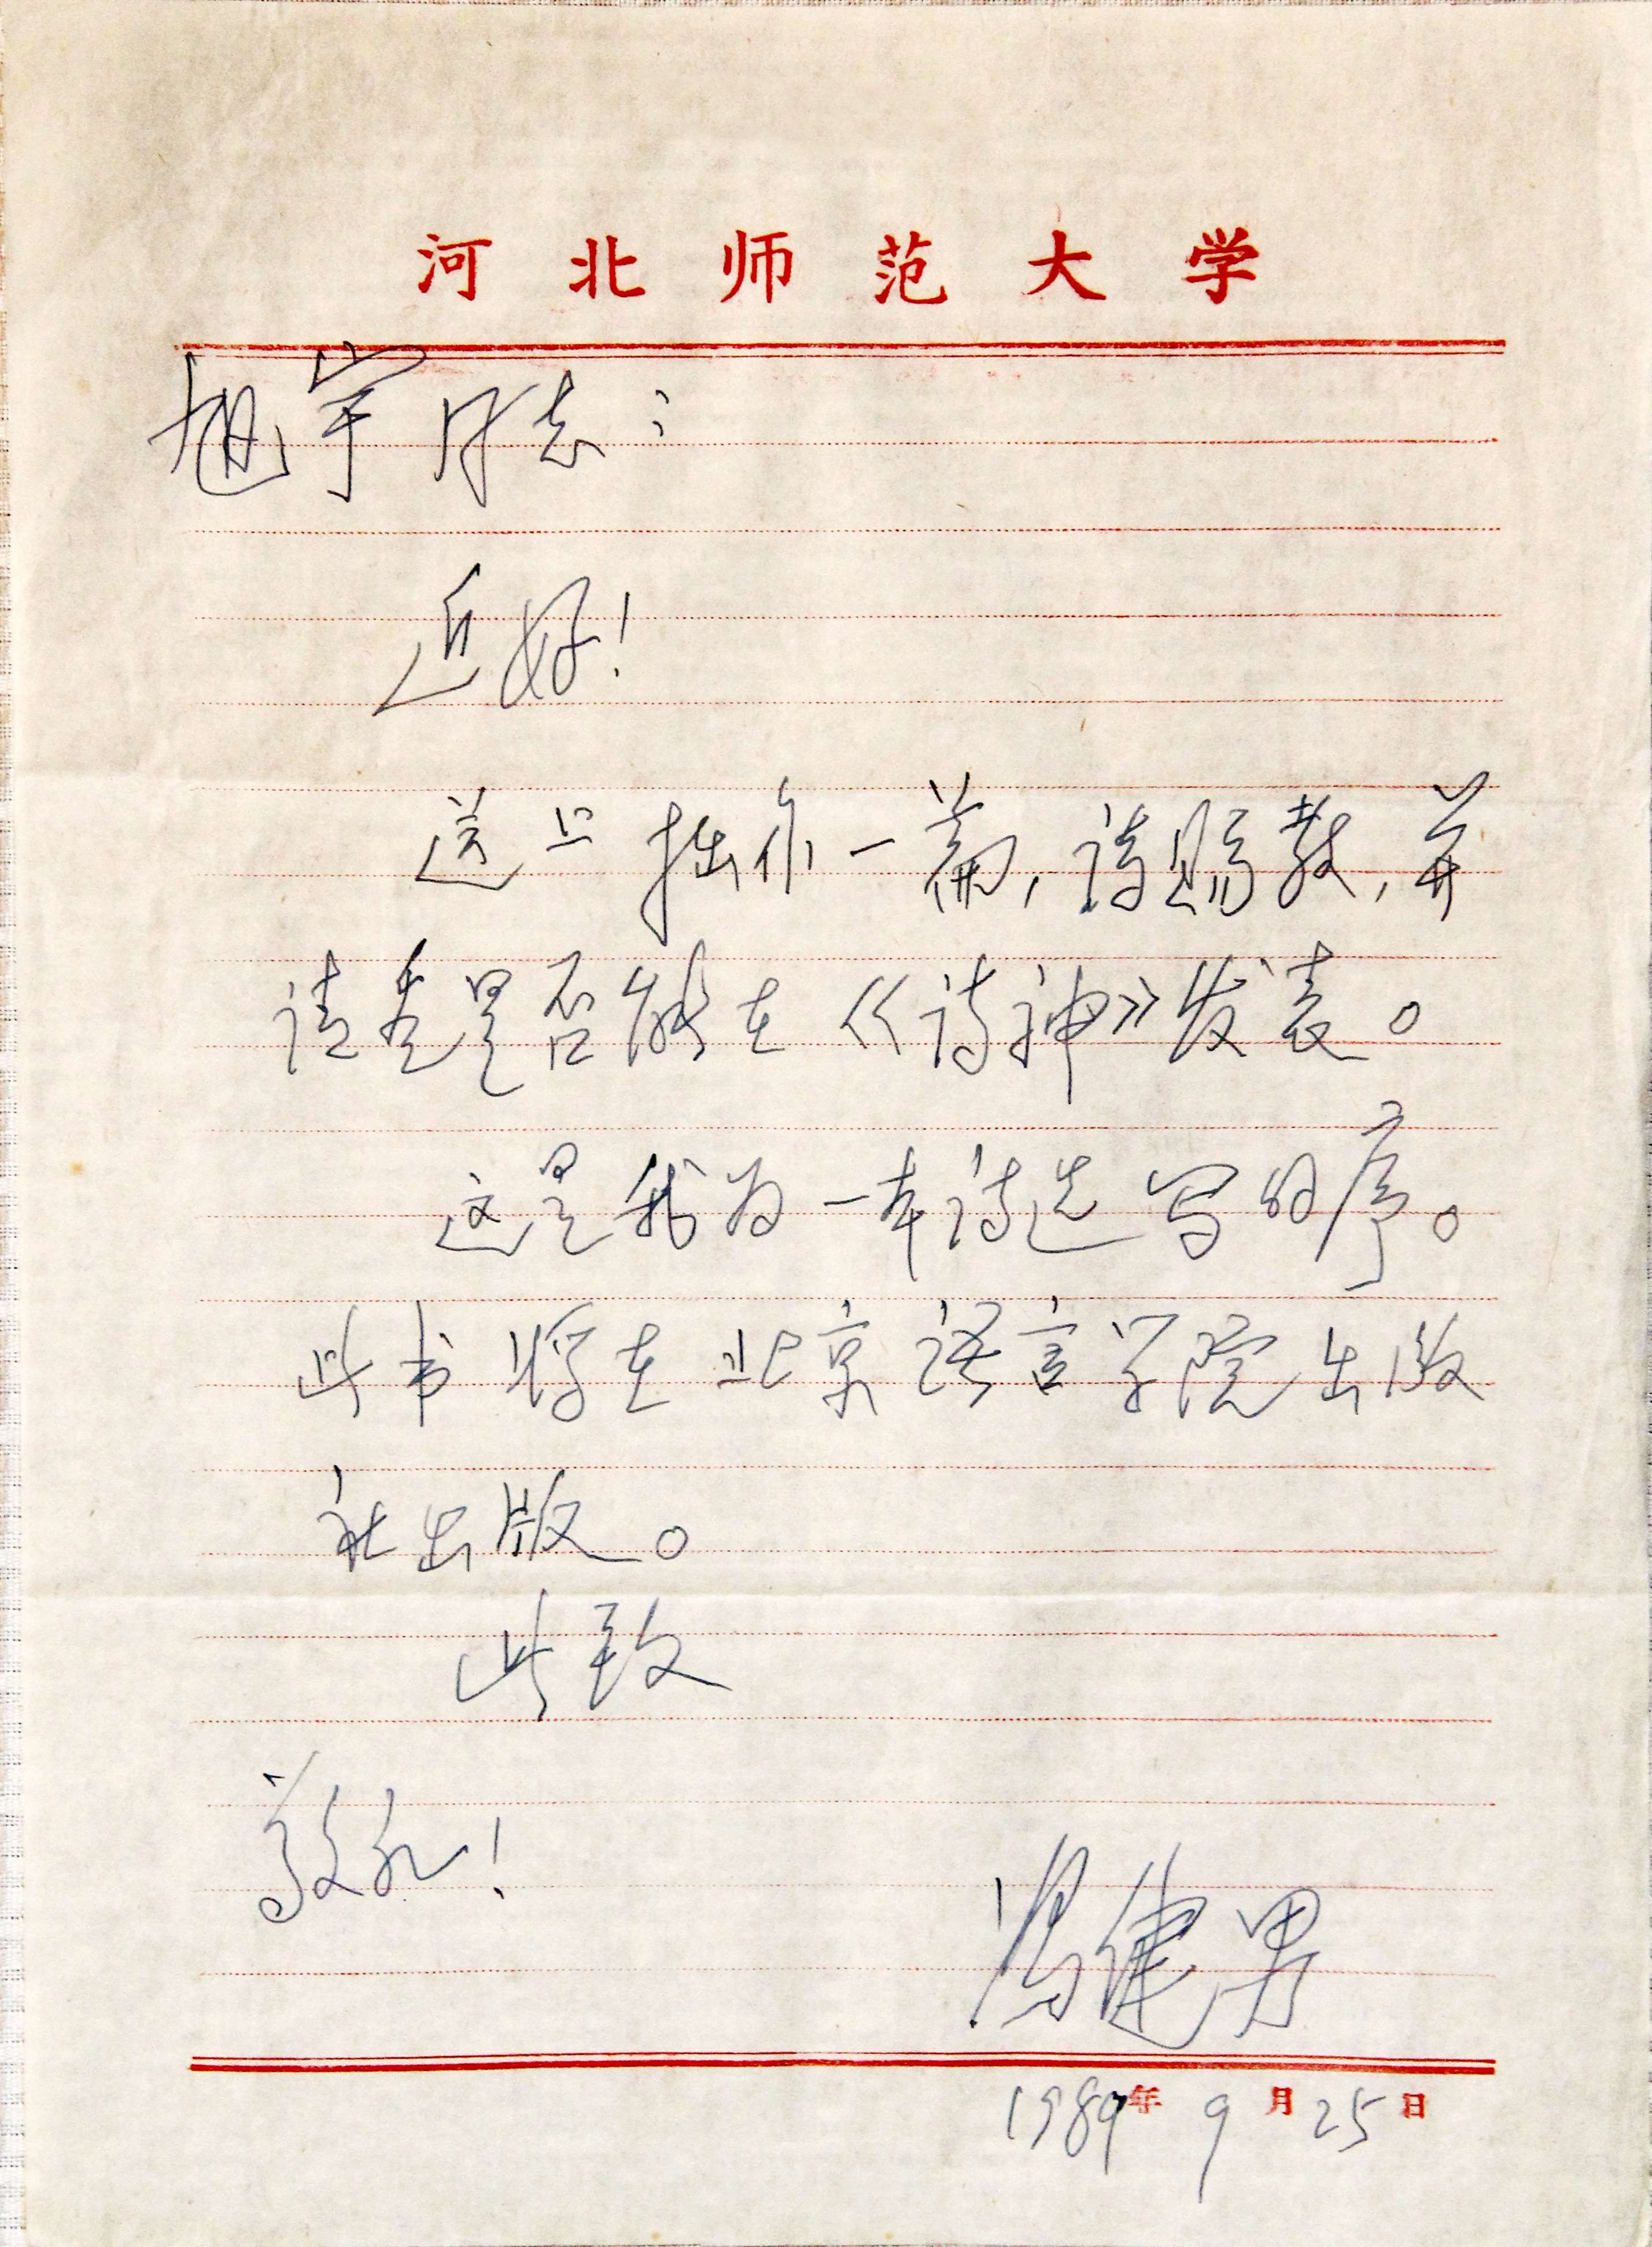 河北师范大学
旭宇同志：
近好！
送上拙作一篇，请赐教，并
请看是否能在《诗神》发表。
这是我为一本诗选写的序。
此书将在北京语言学院出版
社出版。
此致
敬礼！
冯健男
1989年9月25日